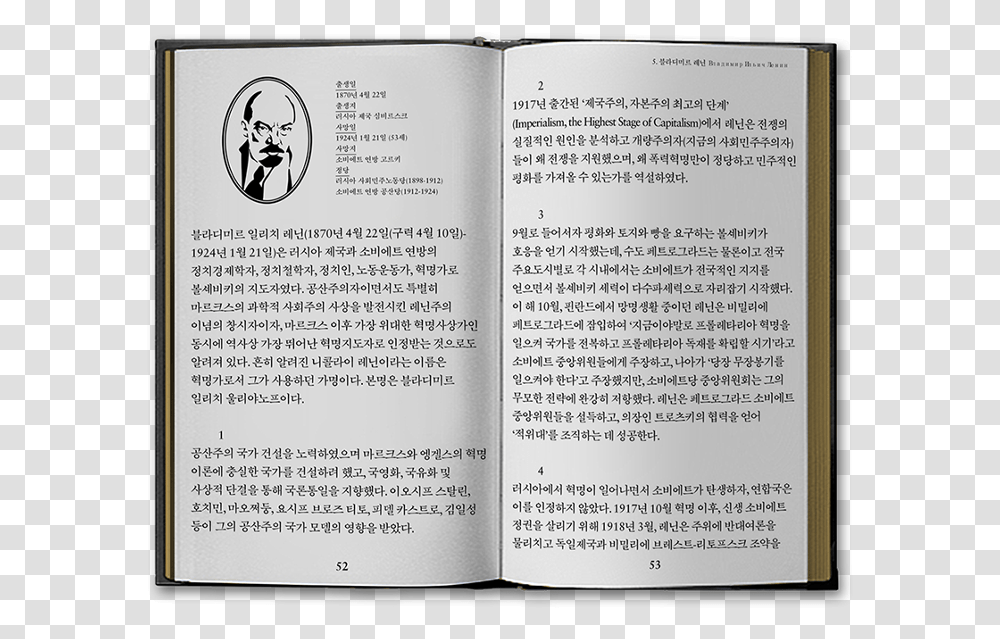 출생일
1870년 4월 22일
출생지
러시아 제국 심비르스크
사망일
1924년 1월 21일 (53세)
사망지
소비에트 연방 고르키
정당
러시아 사회민주노동당(1898-1912)
소비에트 연방 공산당(1912-1924)
블라디미르 일리치 레닌(1870년 4월 22일(구력 4월 10일)-
1924년 1월 21일)은 러시아 제국과 소비에트 연방의
정치경제학자, 정치철학자, 정치인, 노동운동가, 혁명가로
볼셰비키의 지도자였다. 공산주의자이면서도 특별히
마르크스의 과학적 사회주의 사상을 발전시킨 레닌주의
이념의 창시자이자, 마르크스 이후 가장 위대한 혁명사상가인
동시에 역사상 가장 뛰어난 혁명지도자로 인정받는 것으로도
알려져 있다. 흔히 알려진 니콜라이 레닌이라는 이름은
혁명가로서 그가 사용하던 가명이다. 본명은 블라디미르
일리치 울리야노프이다.
1
공산주의 국가 건설을 노력하였으며 마르크스와 엥겔스의 혁명
이론에 충실한 국가를 건설하려 했고, 국영화, 국유화 및
사상적 단결을 통해 국론통일을 지향했다. 이오시프 스탈린,
호치민, 마오쩌둥, 요시프 브로즈 티토, 피델 카스트로, 김일성
등이 그의 공산주의 국가 모델의 영향을 받았다.
52
5. 블라디미르 레닌 Владимир Ильич Ленин
2
1917년 출간된 ‘제국주의, 자본주의 최고의 단계’
(Imperialism, the Highest Stage of Capitalism)에서 레닌은 전쟁의
실질적인 원인을 분석하고 개량주의자(지금의 사회민주주의자)
들이 왜 전쟁을 지원했으며, 왜 폭력혁명만이 정당하고 민주적인
평화를 가져올 수 있는가를 역설하였다.
3
9월로 들어서자 평화와 토지와 빵을 요구하는 볼셰비키가
호응을 얻기 시작했는데, 수도 페트로그라드는 물론이고 전국
주요도시별로 각 시내에서는 소비에트가 전국적인 지지를
얻으면서 볼셰비키 세력이 다수파세력으로 자리잡기 시작했다.
이 해 10월, 핀란드에서 망명생활 중이던 레닌은 비밀리에
페트로그라드에 잠입하여 ‘지금이야말로 프롤레타리아 혁명을
일으켜 국가를 전복하고 프롤레타리아 독재를 확립할 시기’라고
소비에트 중앙위원들에게 주장하고, 나아가 ‘당장 무장봉기를
일으켜야 한다’고 주장했지만, 소비에트당 중앙위원회는 그의
무모한 전략에 완강히 저항했다. 레닌은 페트로그라드 소비에트
중앙위원들을 설득하고, 의장인 트로츠키의 협력을 얻어
‘적위대’를 조직하는 데 성공한다.
4
러시아에서 혁명이 일어나면서 소비에트가 탄생하자, 연합국은
이를 인정하지 않았다. 1917년 10월 혁명 이후, 신생 소비에트
정권을 살리기 위해 1918년 3월, 레닌은 주위에 반대여론을
물리치고 독일제국과 비밀리에 브레스트-리토프스크 조약을
53